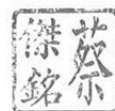 蔡
傑銘